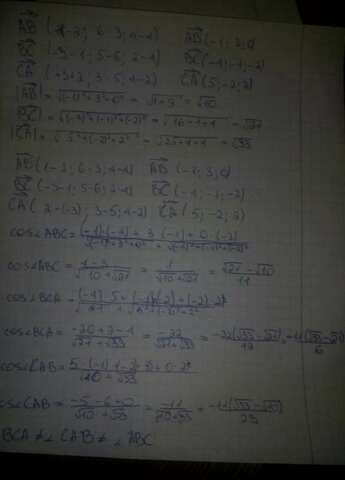 AB (1-2; 6-3; 4-4) AB (-1; 3; 0)
BC (-3-1; 5-6; 2-4) BC (-4; -1; -2)
CA (2+3; 3-5; 4-2) CA (5; -2; 2)
|AB| = √(-1)²+3²+0² = √1+9 = √10
|BC| = √(-4)²+(-1)²+(-2)² = √16+1+4 = √21
|CA| = √5²+(-2)²+2² = √25+4+4 = √33
AB (1-2; 6-3; 4-4) AB (-1; 3; 0)
BC (-3-1; 5-6; 2-4) BC (-4; -1; -2)
CA (2-(-3); 3-5; 4-2) CA (5; -2; 2)
cos∠ABC = (-1)·(-4) + 3·(-1) + 0·(-2)
cos∠ABC = 4-3 / √10+√21 = 1 / √10+√21 = √21-√10 / 11
cos∠BCA = (-4)·5+(-1)(-2)+(-2)·2
cos∠BCA = -20+2-4 / √21+√33 = -22 / √21+√33 = -22(√33-√21) / 12
cos∠CAB = 5·(-1)
cos∠CAB = -5-6+0 / √10+√33 = -11 / √10+√33 = -11(√33-√10) / 23
BCA ≠ ∠CAB ≠ ∠ABC